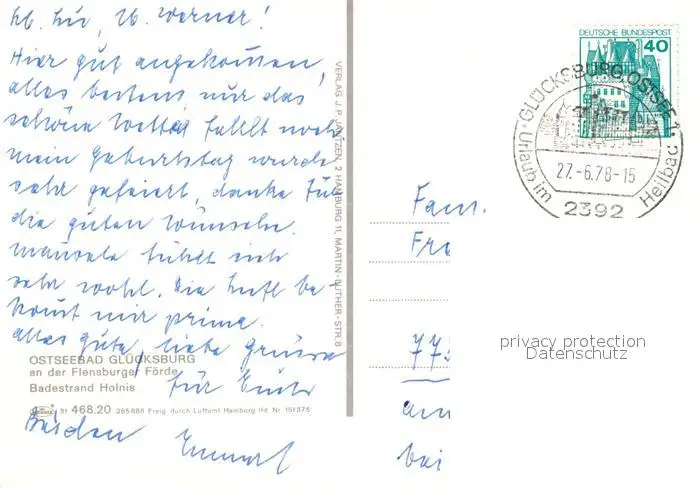 Hier gut angekommen,
alles bestens, nur das
schöne Wetter fehlt noch
mein Geburtstag wurde
sehr gefeiert, danke für
die guten Wünsche.
Mausele fühlt sich
sehr wohl. Die Luft be-
kommt mir prima.
alles gute, liebe Grüsse
für Euch
Beiden
OSTSEEBAD GLÜCKSBURG
an der Flensburger Förde
Badestrand Holnis
468.20 265688 Freig. durch Luftamt Hamburg lfd. Nr. 151375
VERLAG J. P. JANTZEN, 2 HAMBURG 11, MARTIN-LUTHER-STR. 8
DEUTSCHE BUNDESPOST
40
GLÜCKSBURG, OSTSEE 1
27.-6.78-15
Urlaub im Heilbad
2392
Fam.
Fr
77
am
bei
privacy protection
Datenschutz